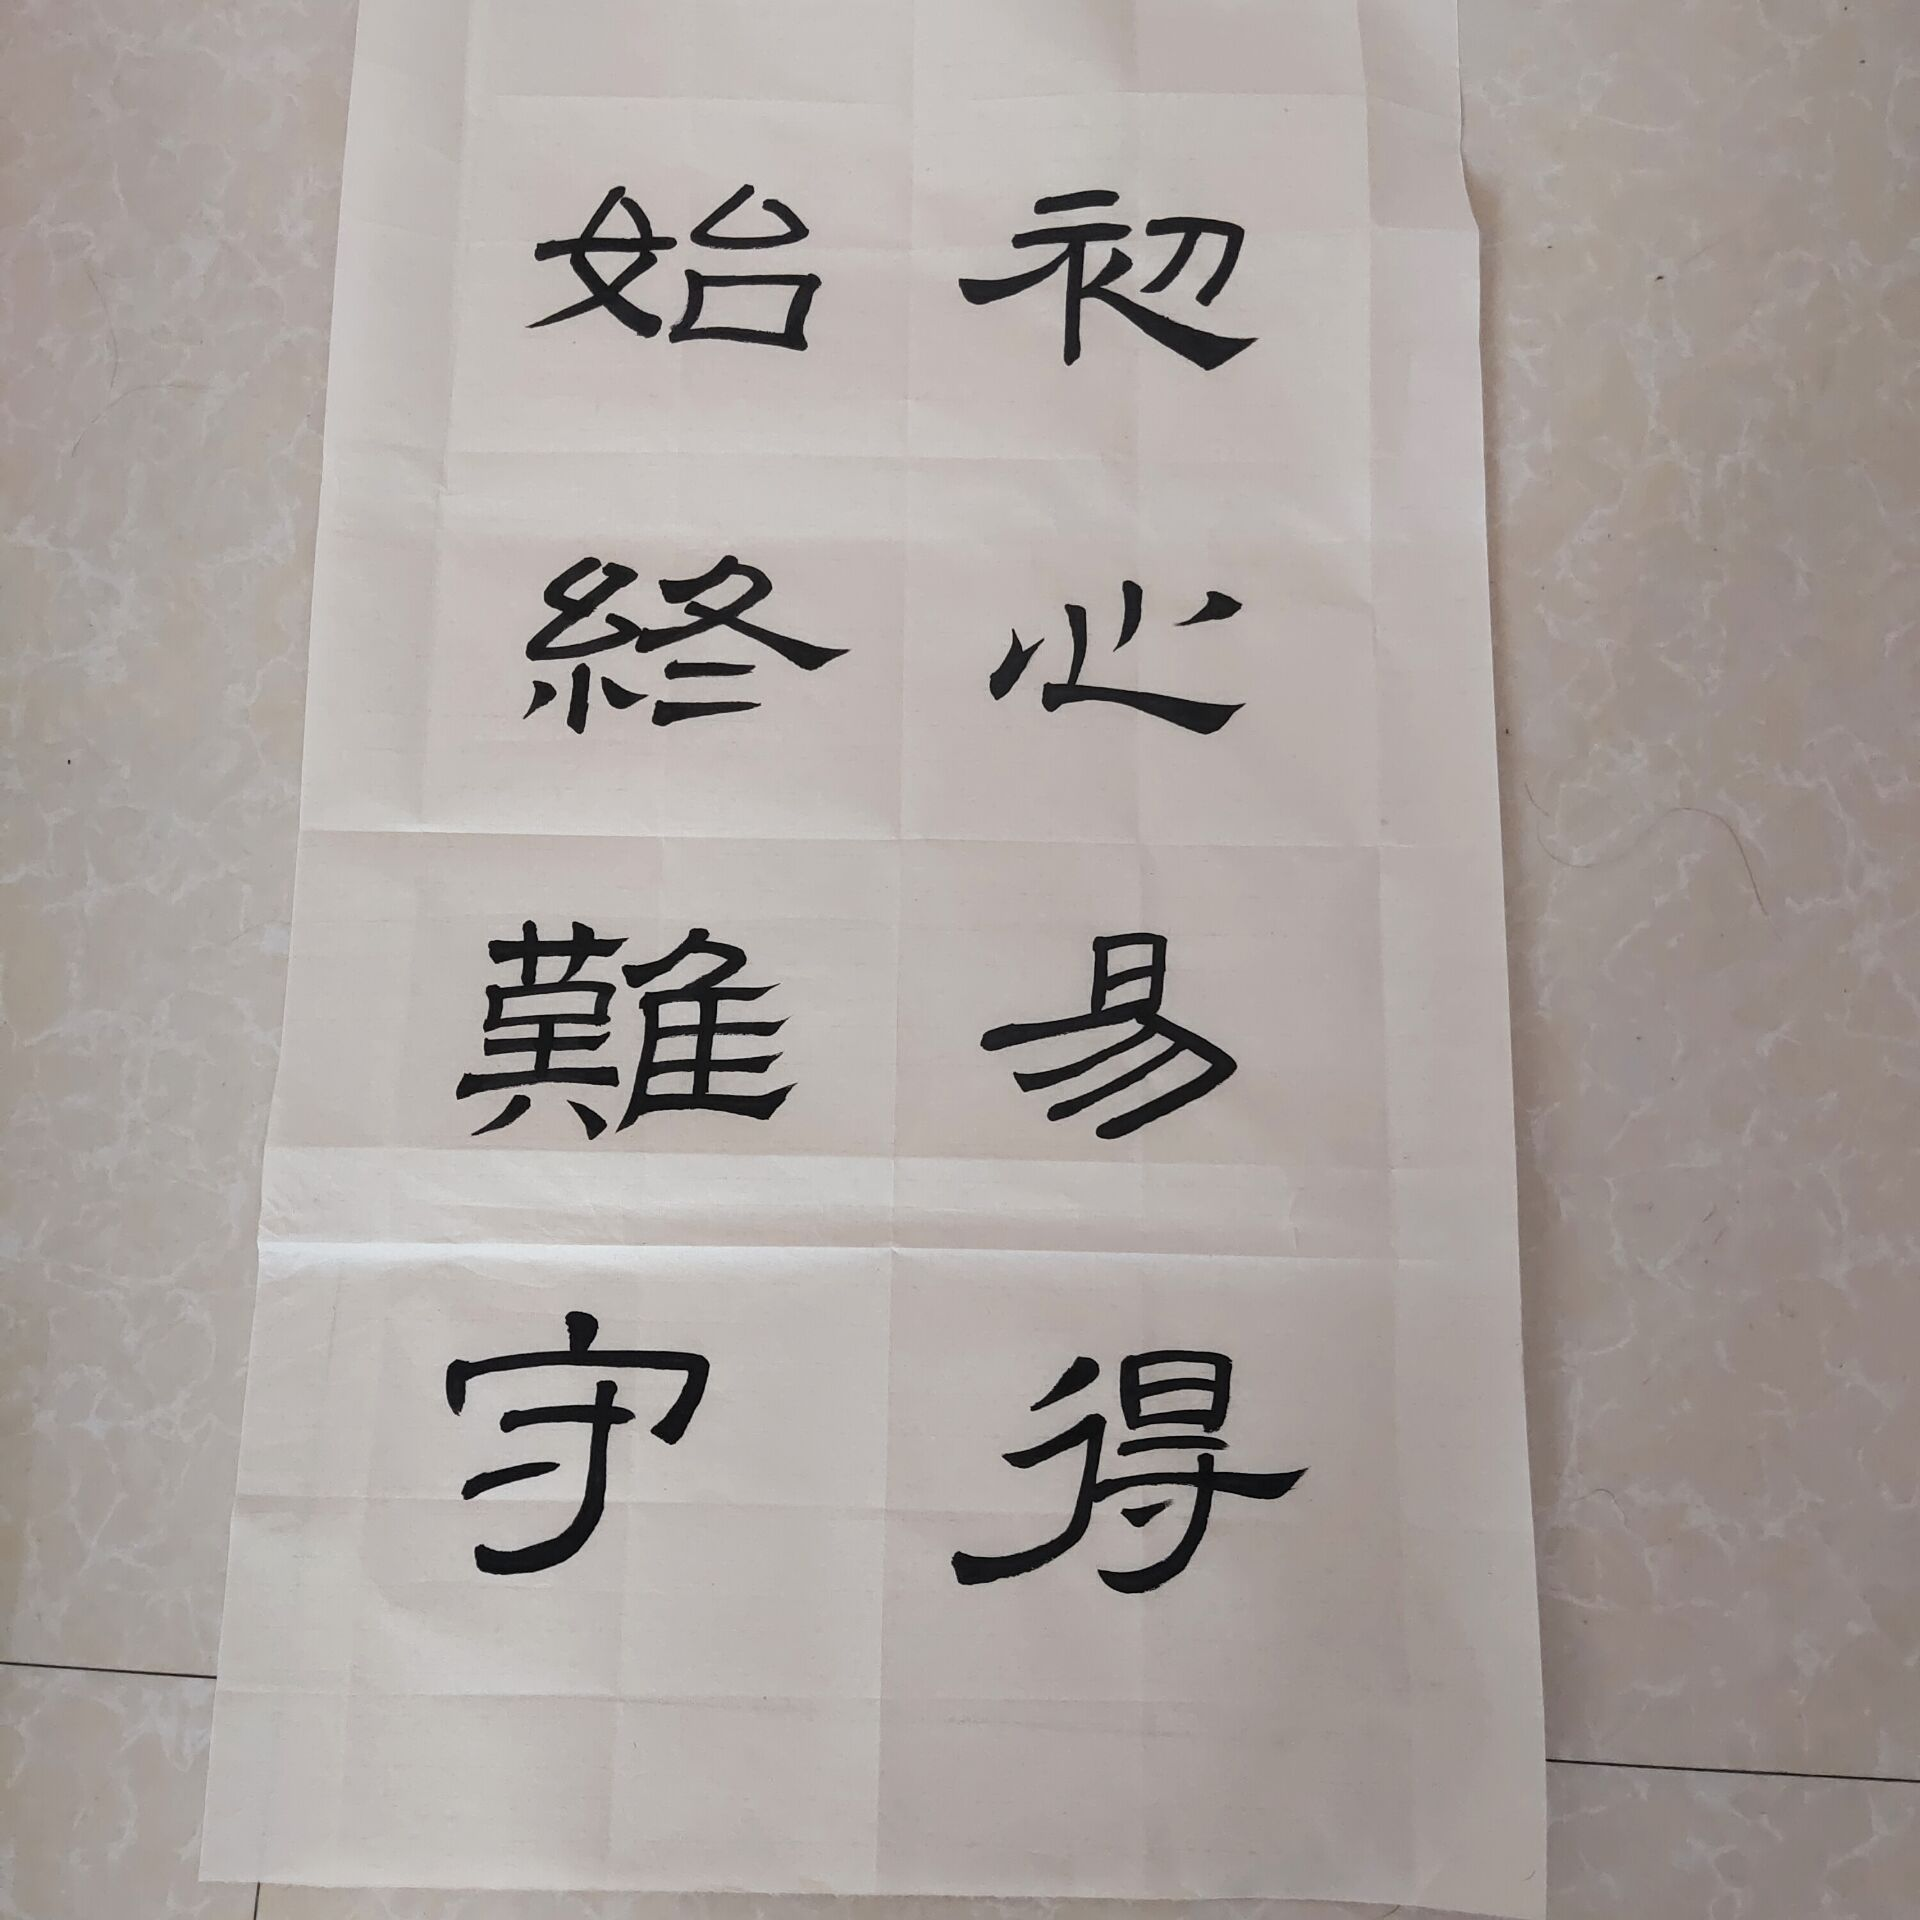 初心易得
始終難守